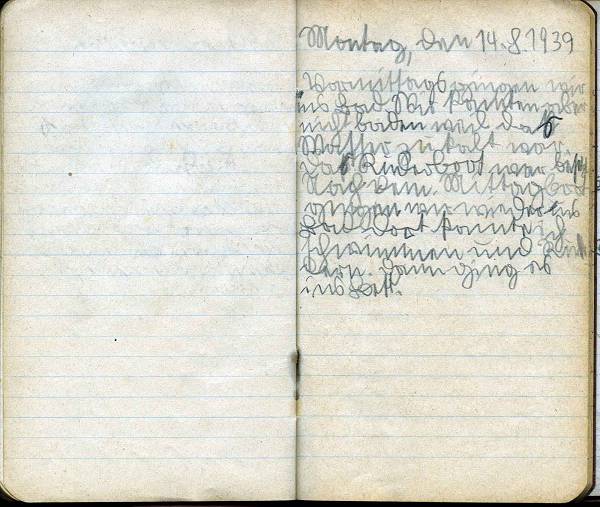 Montag, den 14.8.1939
Vormittags gingen wir
ins Bad. Wir konnten aber
nicht baden weil das
Wasser zu kalt war.
Das Ruderboot war
Nach dem Mittagbrot
gingen wir wieder ins
Bad. Dort konnte ich
schwimmen und
dern. Dann ging es
ins Bett.